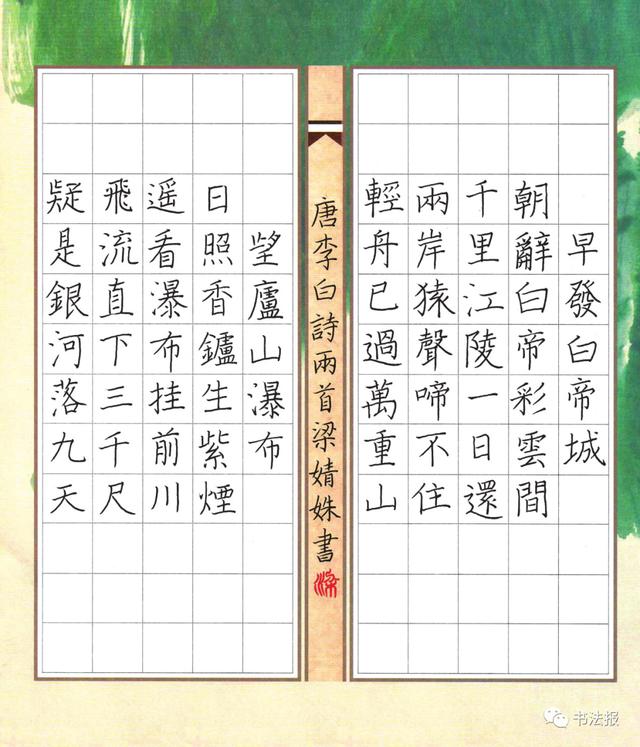 早發白帝城
朝辭白帝彩雲間
千里江陵一日還
兩岸猿聲啼不住
輕舟已過萬重山
唐李白詩兩首梁婧姝書
梁
望廬山瀑布
日照香鑪生紫煙
遥看瀑布挂前川
飛流直下三千尺
疑是銀河落九天
书法报